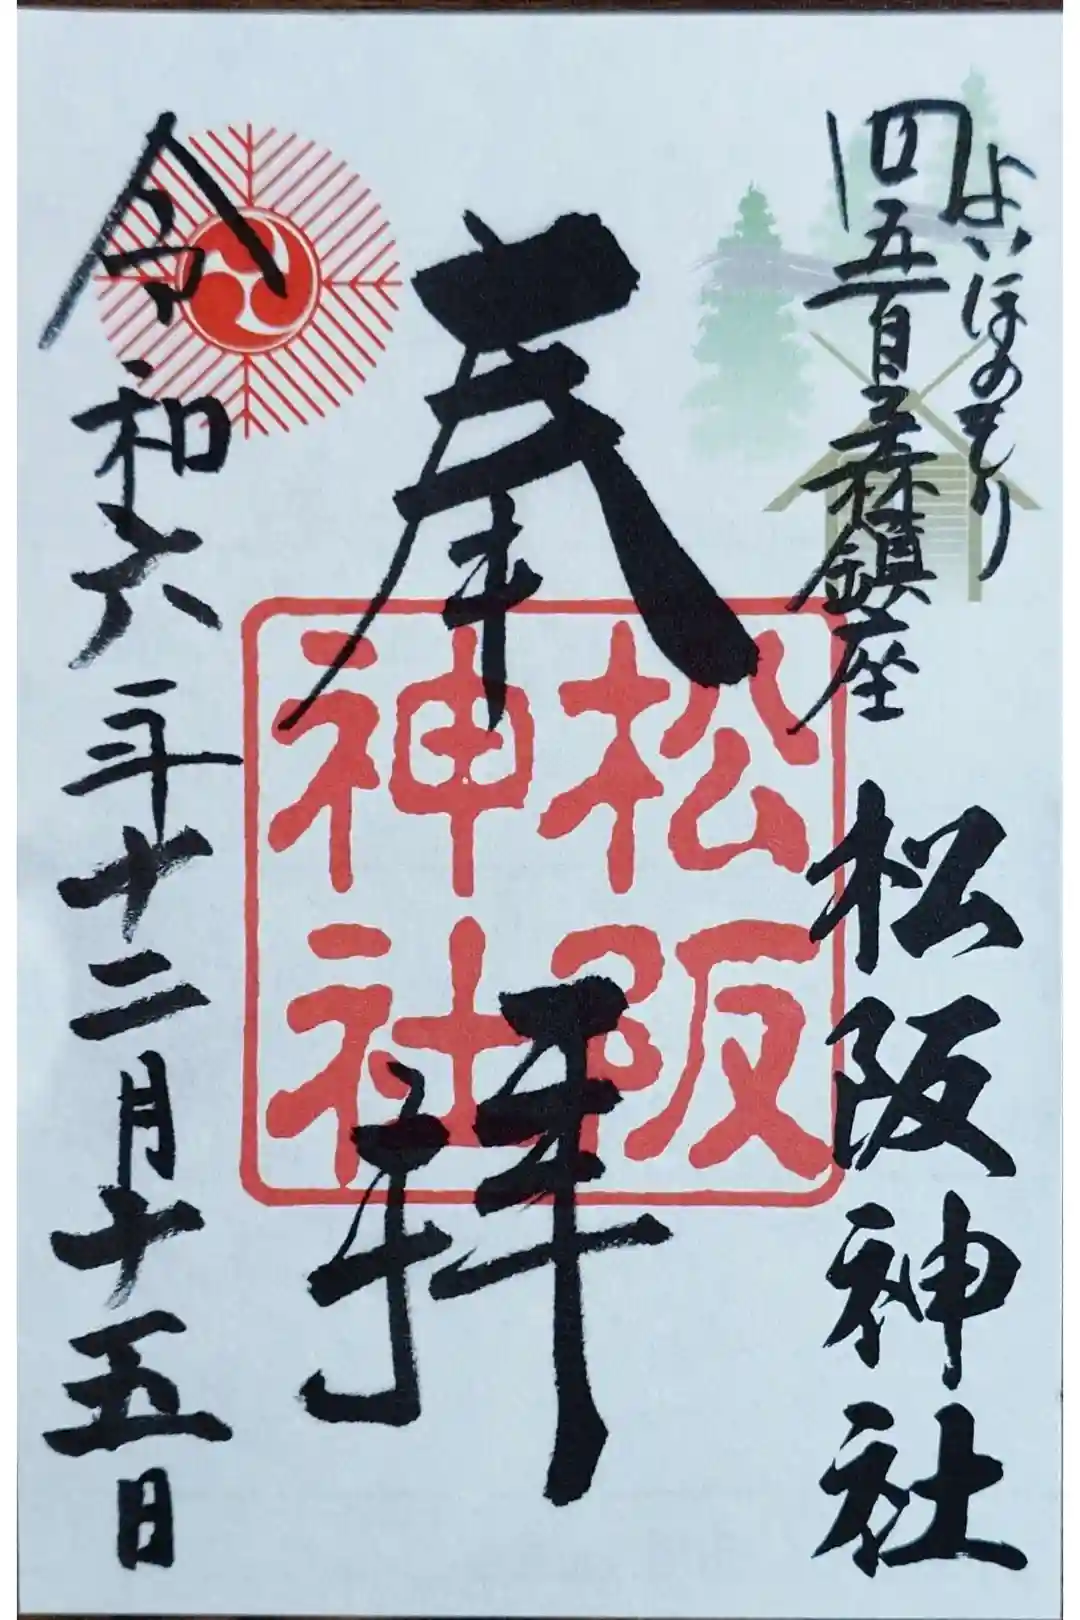 よいほのもり
四五百之森鎮座
松阪神社
奉拝
松阪
神社
令和六年十二月十五日